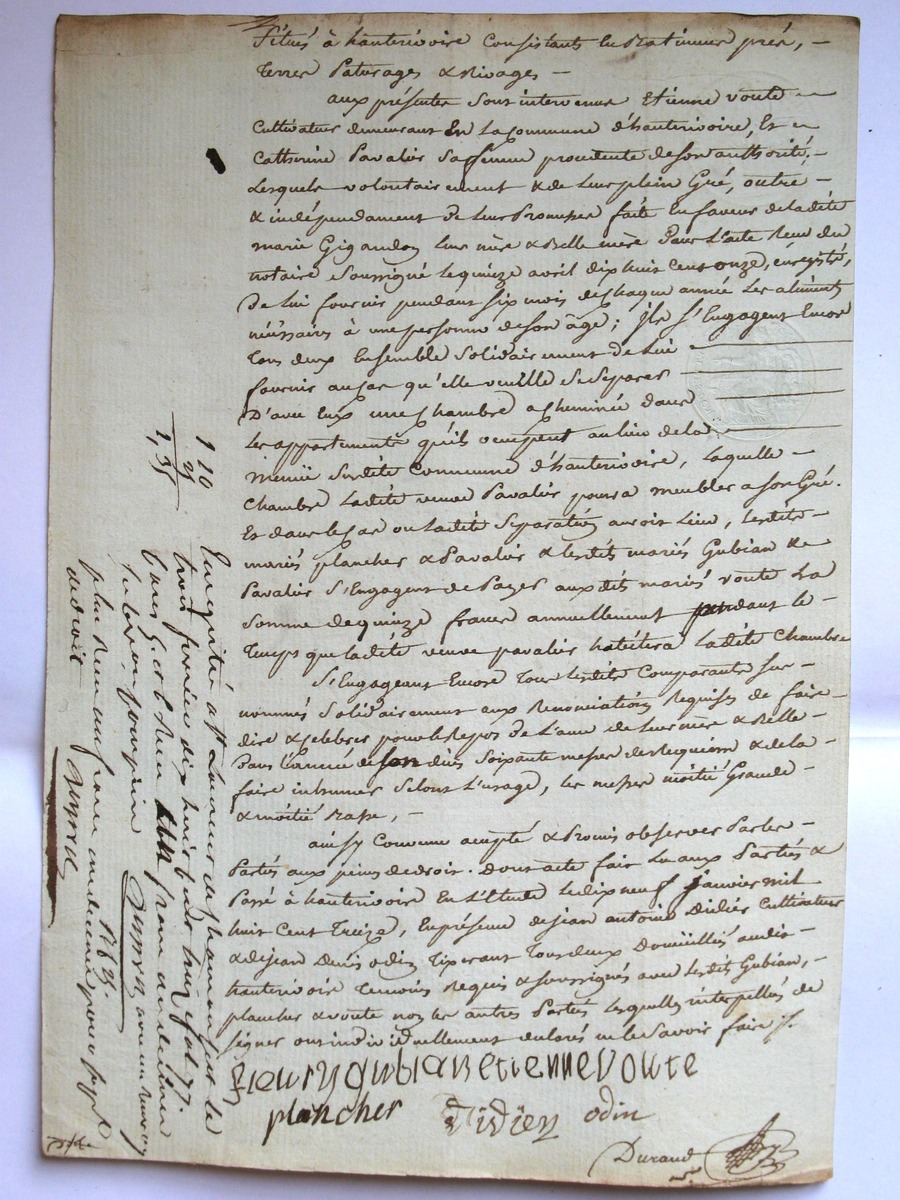 Situés à hauterivoire Consistants En Batiments prés, -
terres Paturages & Rivages -
aux présentes Sont intervenus Etienne voute
Cultivateur demeurant En La Commune d'hauterivoire, Et
Catherine Pavalier Sa femme procedente de Son authorité,
Lesquels volontairement & de Leur plein Gré, outre -
& indépendament de Leur Promesse faite En faveur de ladite
marie Gigandon Leur mère & Belle mère Par L'acte Reçu du
notaire Soussigné Le quinze avril dix huit Cent onze, enregistré,
De Lui fournir pendant Six mois de Chaque année Les aliments
nécessaires à une personne de Son âge; Ils S'Engagent Encore
Tous deux Ensemble Solidairement de Lui
fournir au Cas qu'elle veuille Se Séparer
D'avec Eux une Chambre a Cheminée dans
Les appartements qu'ils occupent au lieu de La
Susdite Commune d'hauterivoire, Laquelle -
Chambre Ladite veuve Pavalier poura meubler a Son Gré.
Et dans le Cas ou Ladite Séparation auroit Lieu, Lesdits -
mariés plancher & Pavalier & Lesdits mariés Gubian &
Pavalier S'Engagent de Payer auxdits mariés voute La
Somme de quinze francs annuellement pendant le
Temps que Ladite veuve pavalier habitera Ladite Chambre
S'Engageant Encore Tous Lesdits Comparants Sur -
nommés Solidairement aux Renonciations Requises de faire
dire & Celebrer pour le Repos de L'ame de Leur mère & Belle -
Dans L'année de Son décès Soixante messes de Requiem & de la
faire inhumer Selont L'usage, Les messes moitié Grande -
& moitié Basse, -
ainsy Convenu accepté & Promis observer Par les -
Partés aux peines de droit. Dont acte fait Lu aux Partés &
Passé à hauterivoire En L'Etude Le dix neuf Janvier mil
huit Cent Treize, En présence de jean antoine Didier Cultivateur
& de jean Denis odin Tixerant Tous deux Domiciliés audit -
hauterivoire Temoins Requis & Soussignés avec Lesdits Gubian, -
plancher & voute non les autres Partés Lesquelles interpellés de
Signer ont individuellement déclarés ne le Savoir faire
fleury gubian etienne voute
plancher Didier odin
Durand
1 10
25
1,35
trois fevrier dix huit Cent
franc
plus Reçu un franc
du droit